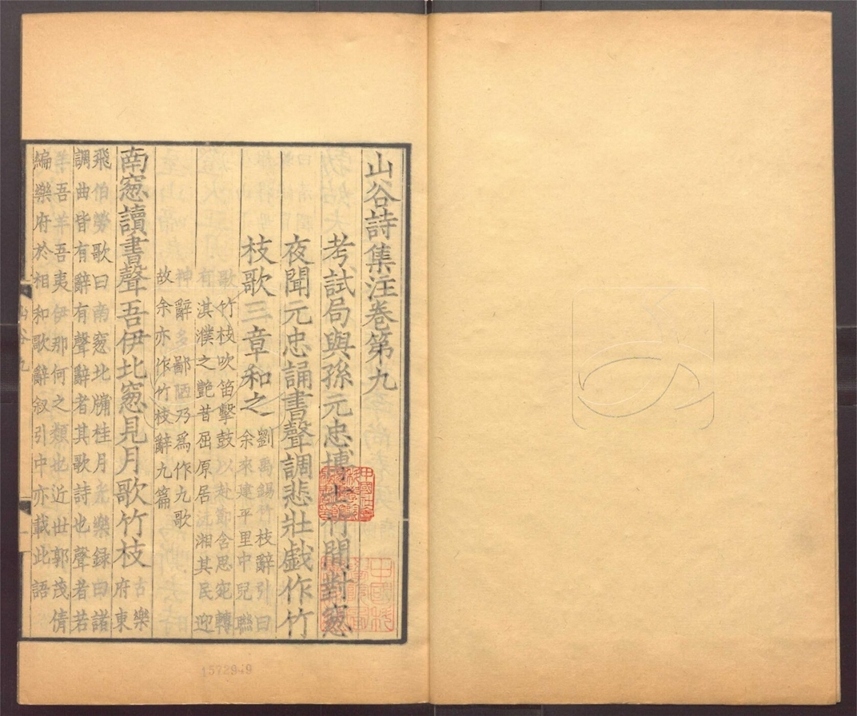 山谷詩集注卷第九
考試局與孫元忠博士竹間對窻
夜聞元忠誦書聲調悲壯戯作竹
枝歌三章和之
劉禹錫竹枝辭引曰
余來建平里中兒聯
歌竹枝吹笛擊鼓以赴節含思宛轉
有淇濮之艶昔屈原居沅湘其民迎
神辭多鄙陋乃爲作九歌
故余亦作竹枝辭九篇
南窻讀書聲吾伊北窻見月歌竹枝
古樂
府東
飛伯勞歌曰南窻北牖桂月光樂録曰諸
調曲皆有辭有聲辭者其歌詩也聲者若
羊吾羊吾夷伊那何之類也近世郭茂倩
編樂府於相和歌辭叙引中亦載此語
山谷九
1572949